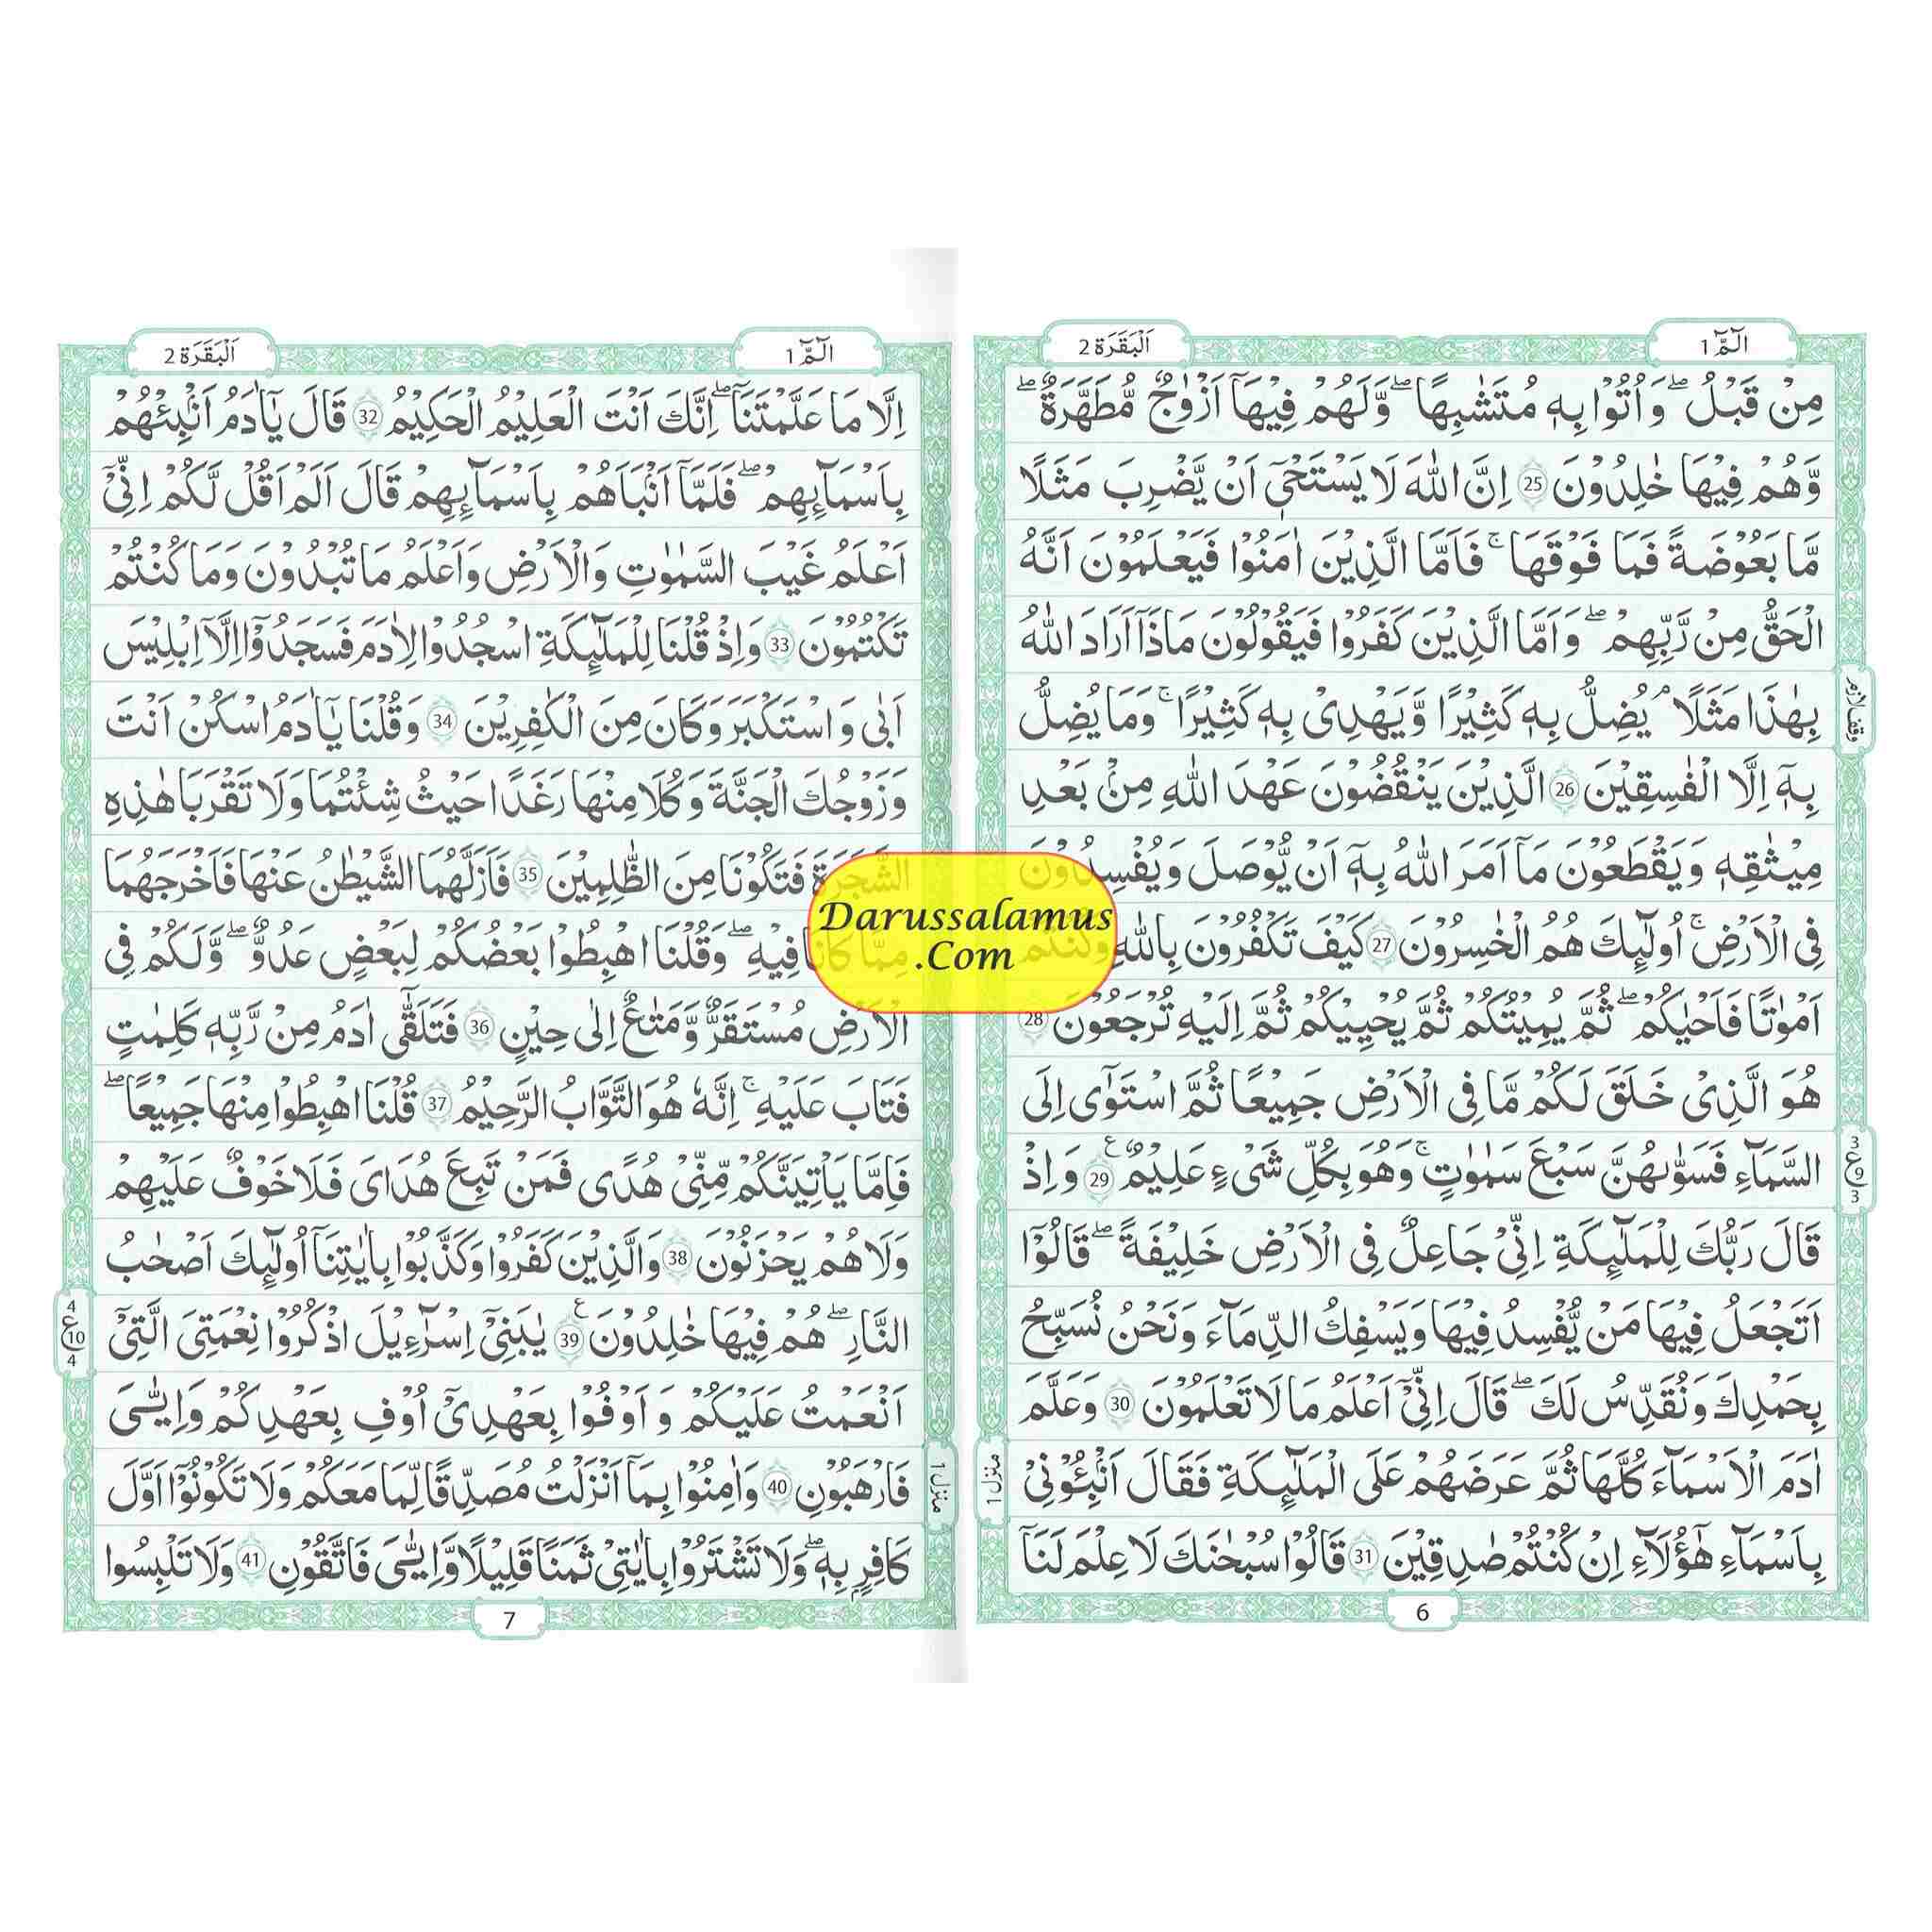 الٓمّٓ 1
اَلْبَقَرَة 2
مِنْ قَبْلُ ۖ وَ اُتُوْا بِهٖ مُتَشٰبِهًا ۖ وَّلَهُمْ فِيْهَاۤ اَزْوٰجٌ مُّطَهَّرَةٌ ۖ
وَّهُمْ فِيْهَا خٰلِدُوْنَ 25 اِنَّ اللّٰهَ لَا يَسْتَحْىٖۤ اَنْ يَّضْرِبَ مَثَلًا
مَّا بَعُوْضَةً فَمَا فَوْقَهَا ۚ فَاَمَّا الَّذِيْنَ اٰمَنُوْا فَيَعْلَمُوْنَ اَنَّهُ
الْحَقُّ مِنْ رَّبِّهِمْ ۖ وَ اَمَّا الَّذِيْنَ كَفَرُوْا فَيَقُوْلُوْنَ مَاذَاۤ اَرَادَ اللّٰهُ
بِهٰذَا مَثَلًا ۘ يُضِلُّ بِهٖ كَثِيْرًا وَّ يَهْدِىْ بِهٖ كَثِيْرًا ۚ وَمَا يُضِلُّ
بِهٖۤ اِلَّا الْفٰسِقِيْنَ 26 الَّذِيْنَ يَنْقُضُوْنَ عَهْدَ اللّٰهِ مِنْۢ بَعْدِ
مِيْثٰقِهٖ وَ يَقْطَعُوْنَ مَاۤ اَمَرَ اللّٰهُ بِهٖۤ اَنْ يُّوْصَلَ وَيُفْسِدُوْنَ
فِى الْاَرْضِ ۚ اُولٰٓئِكَ هُمُ الْخٰسِرُوْنَ 27 كَيْفَ تَكْفُرُوْنَ بِاللّٰهِ وَكُنْتُمْ
اَمْوٰتًا فَاَحْيٰكُمْ ۖ ثُمَّ يُمِيْتُكُمْ ثُمَّ يُحْيِيْكُمْ ثُمَّ اِلَيْهِ تُرْجَعُوْنَ 28
هُوَ الَّذِىْ خَلَقَ لَكُمْ مَّا فِى الْاَرْضِ جَمِيْعًا ثُمَّ اسْتَوٰٓى اِلَى
السَّمَآءِ فَسَوّٰىهُنَّ سَبْعَ سَمٰوٰتٍ ۚ وَهُوَ بِكُلِّ شَىْءٍ عَلِيْمٌ 29 وَ اِذْ
قَالَ رَبُّكَ لِلْمَلٰٓئِكَةِ اِنِّىْ جَاعِلٌ فِى الْاَرْضِ خَلِيْفَةً ۖ قَالُوْۤا
اَتَجْعَلُ فِيْهَا مَنْ يُّفْسِدُ فِيْهَا وَيَسْفِكُ الدِّمَآءَ وَنَحْنُ نُسَبِّحُ
بِحَمْدِكَ وَنُقَدِّسُ لَكَ ۖ قَالَ اِنِّىْۤ اَعْلَمُ مَا لَا تَعْلَمُوْنَ 30 وَعَلَّمَ
اٰدَمَ الْاَسْمَآءَ كُلَّهَا ثُمَّ عَرَضَهُمْ عَلَى الْمَلٰٓئِكَةِ فَقَالَ اَنْۢبِئُوْنِىْ
بِاَسْمَآءِ هٰٓؤُلَآءِ اِنْ كُنْتُمْ صٰدِقِيْنَ 31 قَالُوْا سُبْحٰنَكَ لَا عِلْمَ لَنَاۤ
وقف لازم
3
ع 9
3
منزل 1
6
الٓمّٓ 1
اَلْبَقَرَة 2
اِلَّا مَا عَلَّمْتَنَا ۖ اِنَّكَ اَنْتَ الْعَلِيْمُ الْحَكِيْمُ 32 قَالَ يٰۤاٰدَمُ اَنْۢبِئْهُمْ
بِاَسْمَآئِهِمْ ۖ فَلَمَّاۤ اَنْۢبَاَهُمْ بِاَسْمَآئِهِمْ قَالَ اَلَمْ اَقُلْ لَّكُمْ اِنِّىْۤ
اَعْلَمُ غَيْبَ السَّمٰوٰتِ وَالْاَرْضِ وَاَعْلَمُ مَا تُبْدُوْنَ وَمَا كُنْتُمْ
تَكْتُمُوْنَ 33 وَاِذْ قُلْنَا لِلْمَلٰٓئِكَةِ اسْجُدُوْا لِاٰدَمَ فَسَجَدُوْۤا اِلَّاۤ اِبْلِيْسَ
اَبٰى وَ اسْتَكْبَرَ وَكَانَ مِنَ الْكٰفِرِيْنَ 34 وَ قُلْنَا يٰۤاٰدَمُ اسْكُنْ اَنْتَ
وَزَوْجُكَ الْجَنَّةَ وَكُلَا مِنْهَا رَغَدًا حَيْثُ شِئْتُمَا وَلَا تَقْرَبَا هٰذِهِ
الشَّجَرَةَ فَتَكُوْنَا مِنَ الظّٰلِمِيْنَ 35 فَاَزَلَّهُمَا الشَّيْطٰنُ عَنْهَا فَاَخْرَجَهُمَا
مِمَّا كَانَا فِيْهِ ۖ وَقُلْنَا اهْبِطُوْا بَعْضُكُمْ لِبَعْضٍ عَدُوٌّ ۖ وَّلَكُمْ فِى
الْاَرْضِ مُسْتَقَرٌّ وَّمَتٰعٌ اِلٰى حِيْنٍ 36 فَتَلَقّٰٓى اٰدَمُ مِنْ رَّبِّهٖ كَلِمٰتٍ
فَتَابَ عَلَيْهِ ۚ اِنَّهٗ هُوَ التَّوَّابُ الرَّحِيْمُ 37 قُلْنَا اهْبِطُوْا مِنْهَا جَمِيْعًا ۖ
فَاِمَّا يَاْتِيَنَّكُمْ مِّنِّىْ هُدًى فَمَنْ تَبِعَ هُدَاىَ فَلَا خَوْفٌ عَلَيْهِمْ
وَلَا هُمْ يَحْزَنُوْنَ 38 وَالَّذِيْنَ كَفَرُوْا وَكَذَّبُوْا بِاٰيٰتِنَاۤ اُولٰٓئِكَ اَصْحٰبُ
النَّارِ ۖ هُمْ فِيْهَا خٰلِدُوْنَ 39 يٰبَنِىْۤ اِسْرٰٓءِيْلَ اذْكُرُوْا نِعْمَتِىَ الَّتِىْۤ
اَنْعَمْتُ عَلَيْكُمْ وَ اَوْفُوْا بِعَهْدِىْۤ اُوْفِ بِعَهْدِكُمْ وَاِيّٰىَ
فَارْهَبُوْنِ 40 وَاٰمِنُوْا بِمَاۤ اَنْزَلْتُ مُصَدِّقًا لِّمَا مَعَكُمْ وَلَا تَكُوْنُوْۤا اَوَّلَ
كَافِرٍۢ بِهٖ ۖ وَلَا تَشْتَرُوْا بِاٰيٰتِىْ ثَمَنًا قَلِيْلًا وَّاِيّٰىَ فَاتَّقُوْنِ 41 وَلَا تَلْبِسُوا
4
ع 10
4
منزل 1
7
Darussalamus
.Com